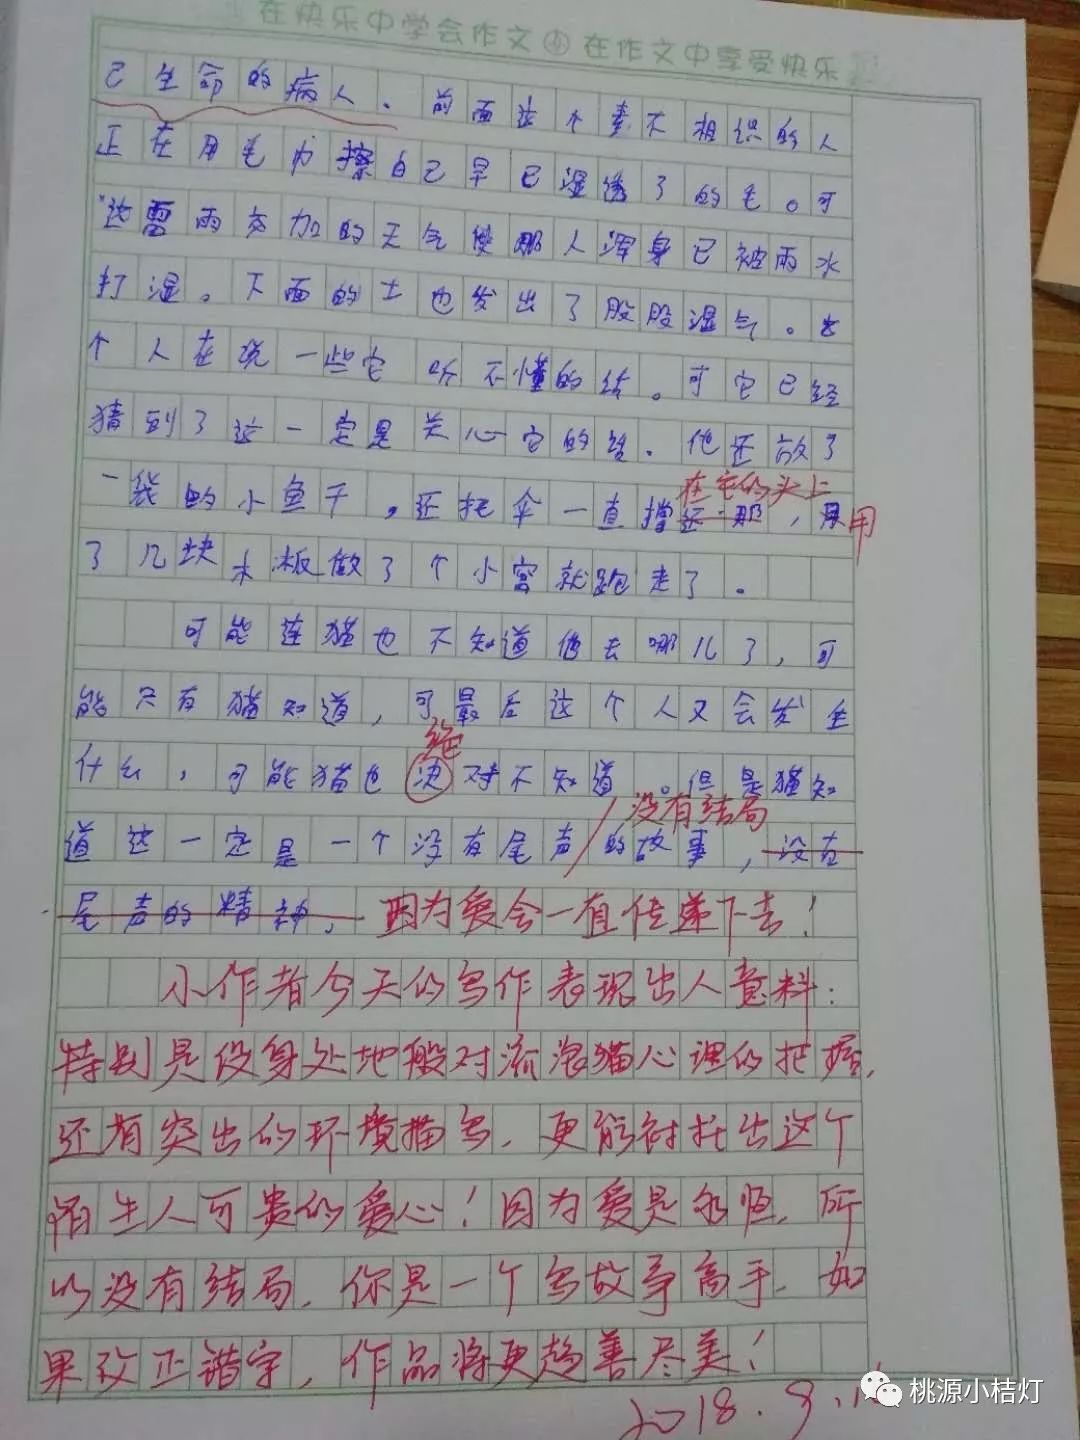 在快乐中学会作文 在作文中享受快乐
己生命的病人。前面这个素不相识的人
正在用毛巾擦自己早已湿透了的毛。可
这雷雨交加的天气使那人浑身已被雨水
打湿。下面的土也发出了股股湿气。
个人在说一些它听不懂的话。可它已经
猜到了这一定是关心它的话。他还放了
在它的头上
一袋的小鱼干,还把伞一直撑还那,用用
了几块木板做了个小窝就跑走了。
可能连猫也不知道他去哪儿了,可
能只有猫知道,可最后这个人又会发生
绝
什么,可能猫也决对不知道。但是猫知
没有结局
道这一定是一个没有尾声的故事,没有
尾声的精神, 因为爱会一直传递下去!
小作者今天的写作表现出人意料:
特别是设身处地般对流浪猫心理的把握,
还有突出的环境描写,更能衬托出这个
陌生人可贵的爱心!因为爱是永恒,所
以没有结局,你是一个写故事高手,如
果改正错字,作品将更趋善尽美!
2018.9.
桃源小桔灯